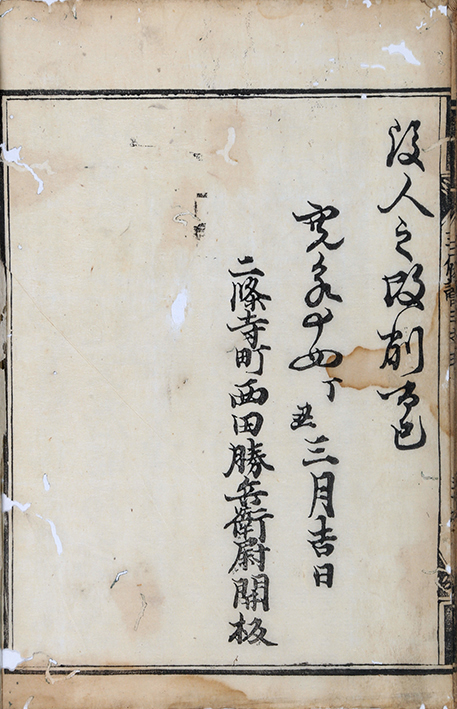 後人之改削而已
寛永十四丁丑三月吉日
二條寺町西田勝兵衛尉開板